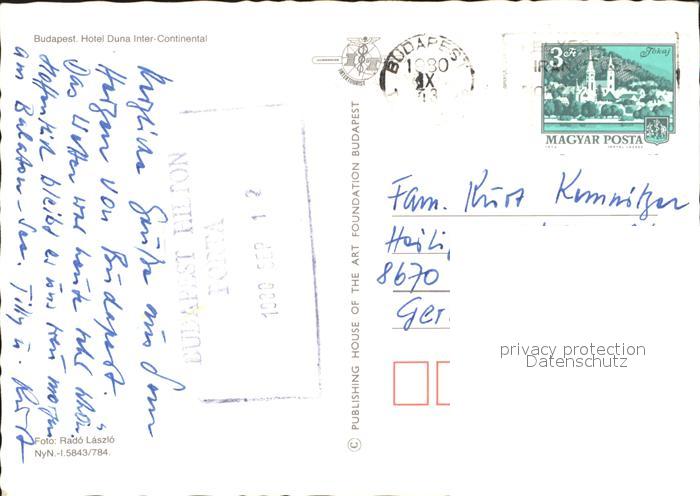 Budapest. Hotel Duna Inter-Continental
Herzliche Grüße aus dem
Herzen von Budapest.
Das Wetter war heute sehr schön.
Hoffentlich bleibt es uns treu morgen
am Balaton-See. Tilly u. Kurt
Foto: Radó László
NyN.-I.5843/784.
BUDAPEST HILTON
PORTA
1980 SEP 12
© PUBLISHING HOUSE OF THE ART FOUNDATION BUDAPEST
BUDAPEST
1980
IX
13
3 Ft
Tokaj
MAGYAR POSTA
Fam. Kurt Kemnitzer
Heili
8670
Ger.
privacy protection
Datenschutz